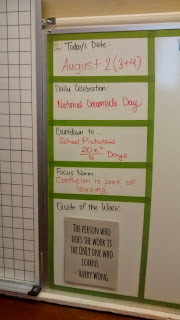 Today's Date:
August 2(3+4)
Daily Celebration:
National Creamsicle Day
Countdown to...
School Pictures
20x
10
Days!
Focus Norm:
Confusion is part of
learning.
Quote of the Week:
THE PERSON WHO
DOES THE WORK IS
THE ONLY ONE WHO
LEARNS
- HARRY WONG